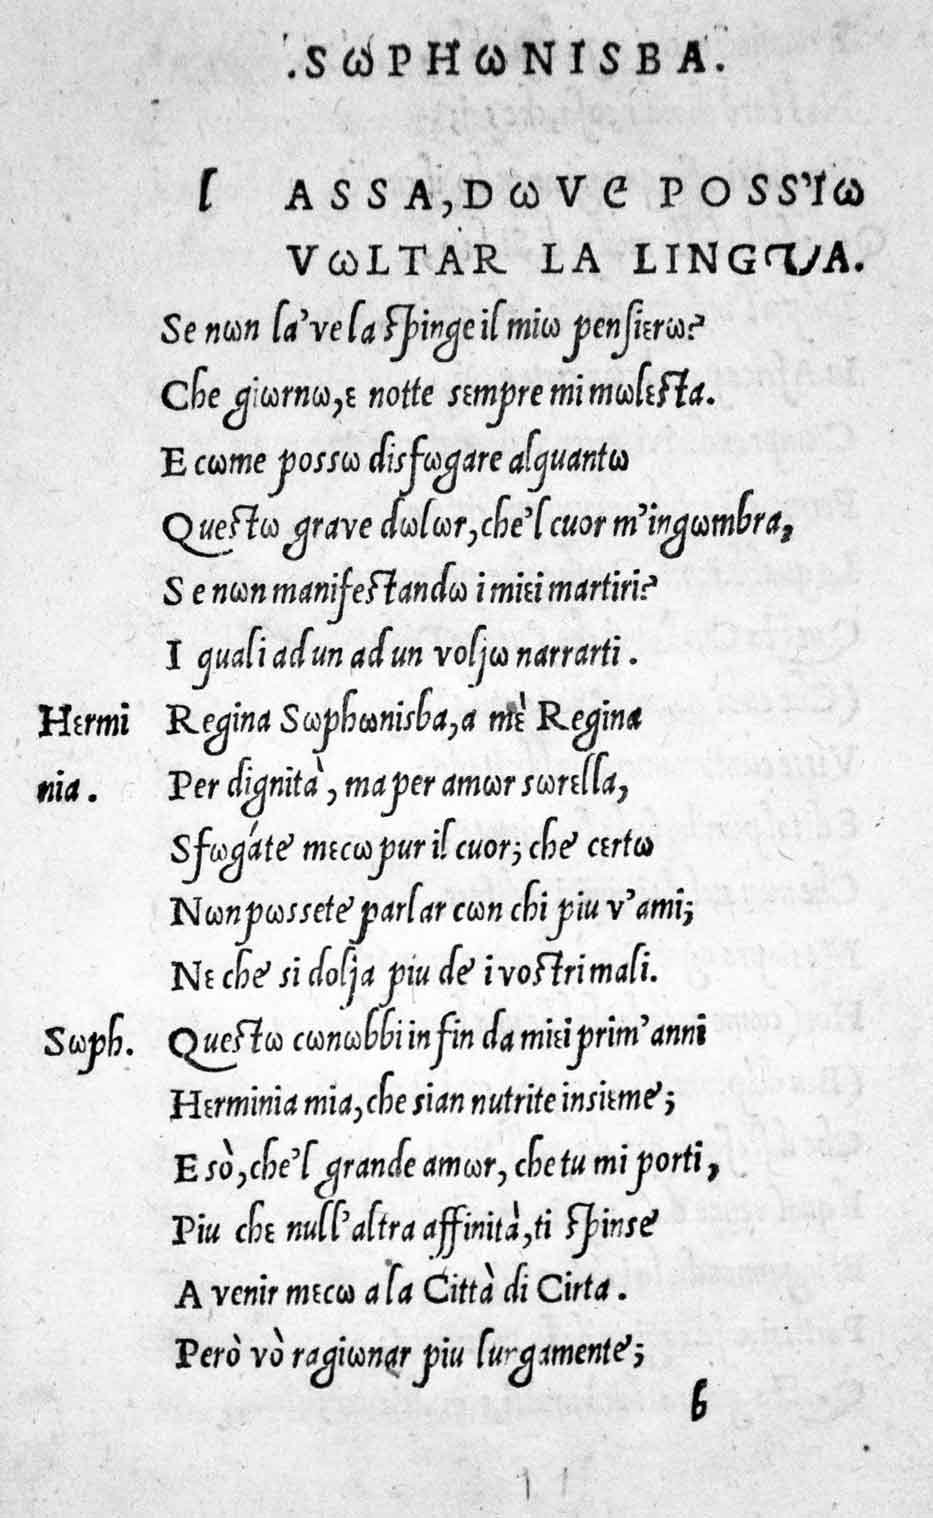 .SωPHωNISBA.
l ASSA, DωVЄ POSS'Iω
VωLTAR LA LINGQVA.
Se nωn la' ve la spinge il miω pensiεrω?
Che giωrnω, ε notte sεmpre mi mωlεsta.
E cωme possω disfωgare alquantω
Questω grave dωlωr, che'l cuor m'ingωmbra,
Se nωn manifestandω i miεi martiri?
I quali ad un ad un vωljω narrarti.
Hεrmi Regina Sωphωnisba, a mὲ Regina
nia. Per dignità, ma per amωr sωrεlla,
Sfωgáte mεcω pur il cuor; che cεrtω
Nωn pωssete parlar cωn chi piu v'ami;
Nε che si dolja piu de i vostri mali.
Sωph. Questω cωnωbbi in fin da miεi prim'anni
Hεrminia mia, che sian nutrite insiεme;
E sò, che'l grande amωr, che tu mi porti,
Piu chε null'altra affinità, ti spinse
A venir mεcω a la Città di Cirta.
Però vò ragiωnar piu lurgamente;
b